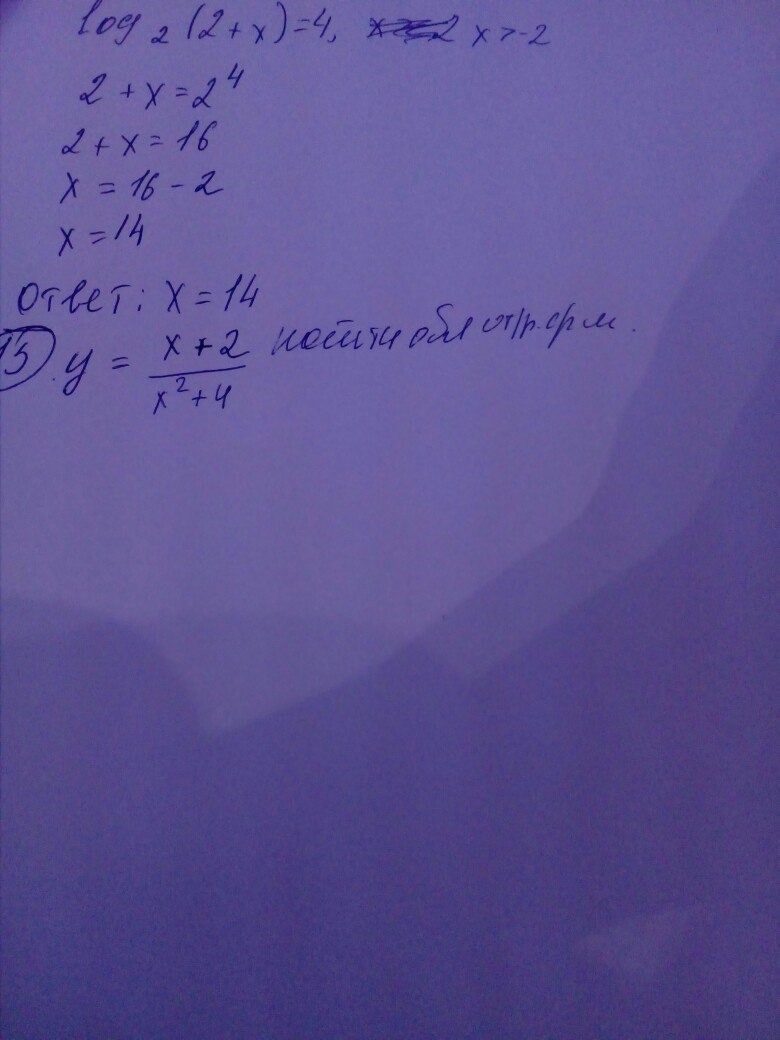 log₂(2+x)=4, x>-2
2+x=2⁴
2+x=16
x=16-2
x=14
Ответ: x=14
15 y = (x+2)/(x²+4) найти обл